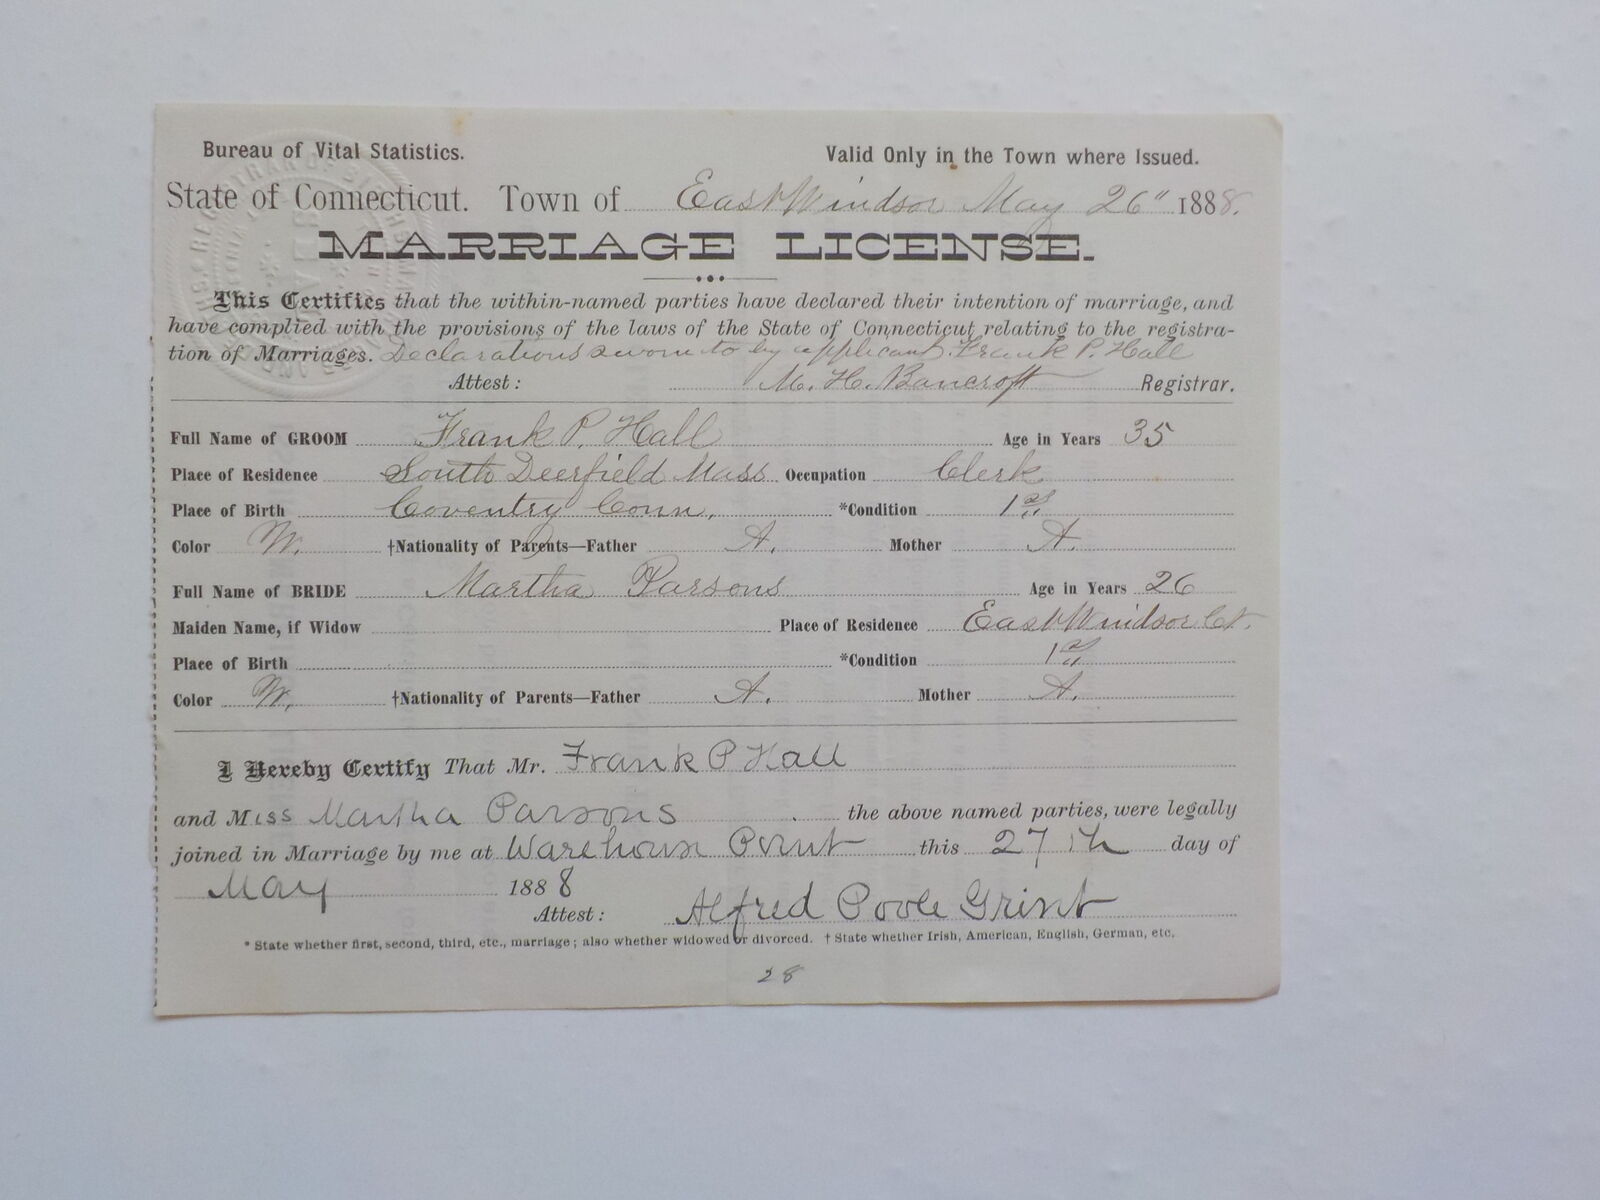 Bureau of Vital Statistics. Valid Only in the Town where Issued.
State of Connecticut. Town of East Windsor May 26" 1888.
MARRIAGE LICENSE.
This Certifies that the within-named parties have declared their intention of marriage, and
have complied with the provisions of the laws of the State of Connecticut relating to the registra-
tion of Marriages. Declarations sworn to by applicant. Frank P. Hall
Attest: M. H. Bancroft Registrar.
Full Name of GROOM Frank P. Hall Age in Years 35
Place of Residence South Deerfield Mass Occupation Clerk
Place of Birth Coventry Conn. *Condition 1st
Color W. †Nationality of Parents—Father A. Mother A.
Full Name of BRIDE Martha Parsons Age in Years 26
Maiden Name, if Widow Place of Residence East Windsor Ct.
Place of Birth *Condition 1st
Color W. †Nationality of Parents—Father A. Mother A.
I Hereby Certify That Mr. Frank P Hall
and Miss Martha Parsons the above named parties, were legally
joined in Marriage by me at Warehouse Point this 27th day of
May 1888
Attest: Alfred Poole Grint
* State whether first, second, third, etc., marriage; also whether widowed or divorced. † State whether Irish, American, English, German, etc.
28